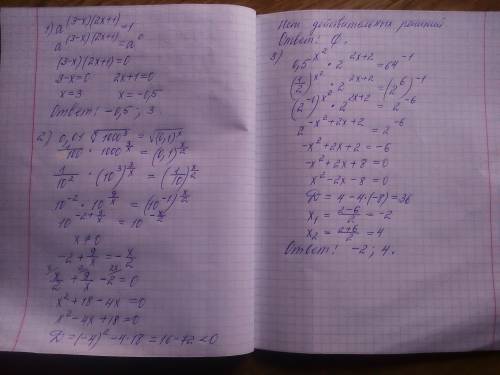 1) a^((3-x)(2x+1)) = 1
a^((3-x)(2x+1)) = a^0
(3-x)(2x+1) = 0
3-x=0   2x+1=0
x=3   x=-0,5
Ответ: -0,5; 3.
2) 0,01 ˣ√(1000³) = √((0,1)ˣ)
1/100 · 1000^(3/x) = (0,1)^(x/2)
1/10² · (10³)^(3/x) = (1/10)^(x/2)
10^(-2) · 10^(9/x) = (10^(-1))^(x/2)
10^(-2+9/x) = 10^(-x/2)
x≠0
-2 + 9/x = -x/2
x/2 + 9/x - 2 = 0
x² + 18 - 4x = 0
x² - 4x + 18 = 0
D = (-4)² - 4·18 = 16-72 < 0
Нет действительных решений
Ответ: ∅.
3) 0,5^(x²) · 2^(2x+2) = 64^(-1)
(1/2)^(x²) · 2^(2x+2) = (2⁶)^(-1)
(2^(-1))^(x²) · 2^(2x+2) = 2^(-6)
2^(-x²+2x+2) = 2^(-6)
-x²+2x+2 = -6
-x²+2x+8 = 0
x²-2x-8 = 0
D = 4-4·(-8) = 36
x₁ = (2-6)/2 = -2
x₂ = (2+6)/2 = 4
Ответ: -2; 4.